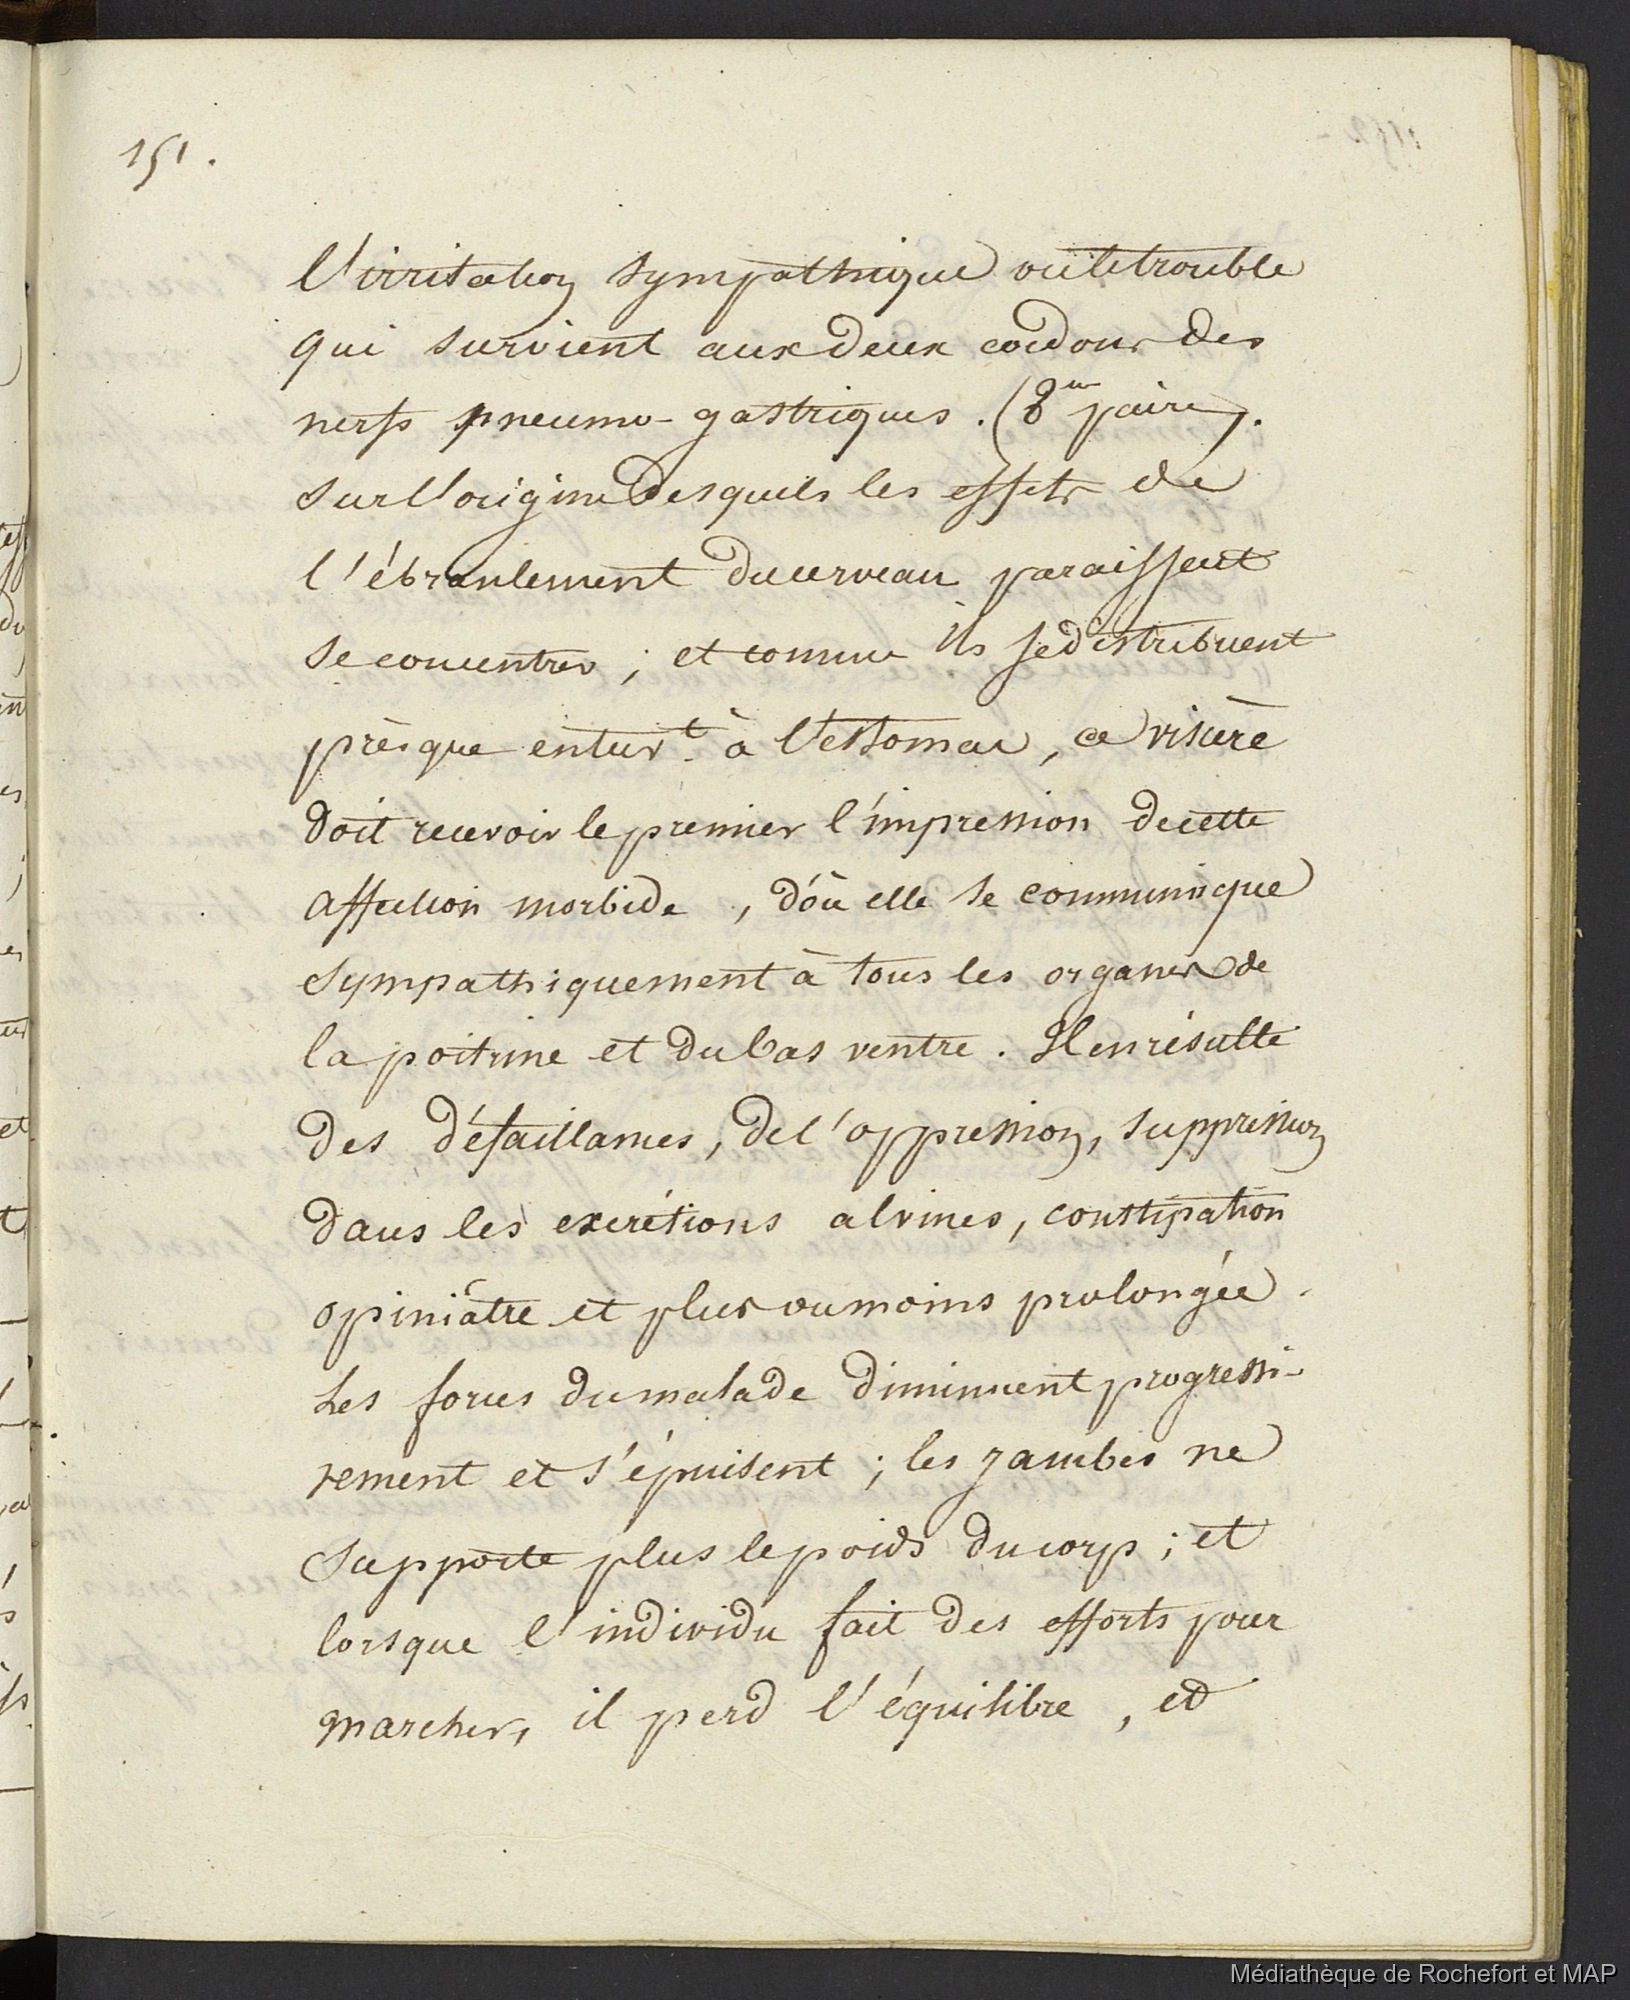 151.
l'irritation sympathique ou le trouble
qui survient aux deux cordons des
nerfs pneumo-gastriques. (8me paire).
sur l'origine desquels les effets de
l'ébranlement du cerveau paraissent
se concentrer; et comme ils se distribuent
prèsque entiert. à l'estomac, ce viscère
doit recevoir le premier l'impression de cette
affection morbide, d'où elle se communique
sympathiquement à tous les organes de
la poitrine et du bas ventre. Il en résulte
des défaillances, de l'oppression, suppression
dans les excrétions alvines, constipation
opiniâtre et plus ou moins prolongée.
Les forces du malade diminuent progressi-
vement et s'épuisent; les jambes ne
supporte plus le poids du corps; et
lorsque l'individu fait des efforts pour
marcher, il perd l'équilibre, et
Médiathèque de Rochefort et MAP